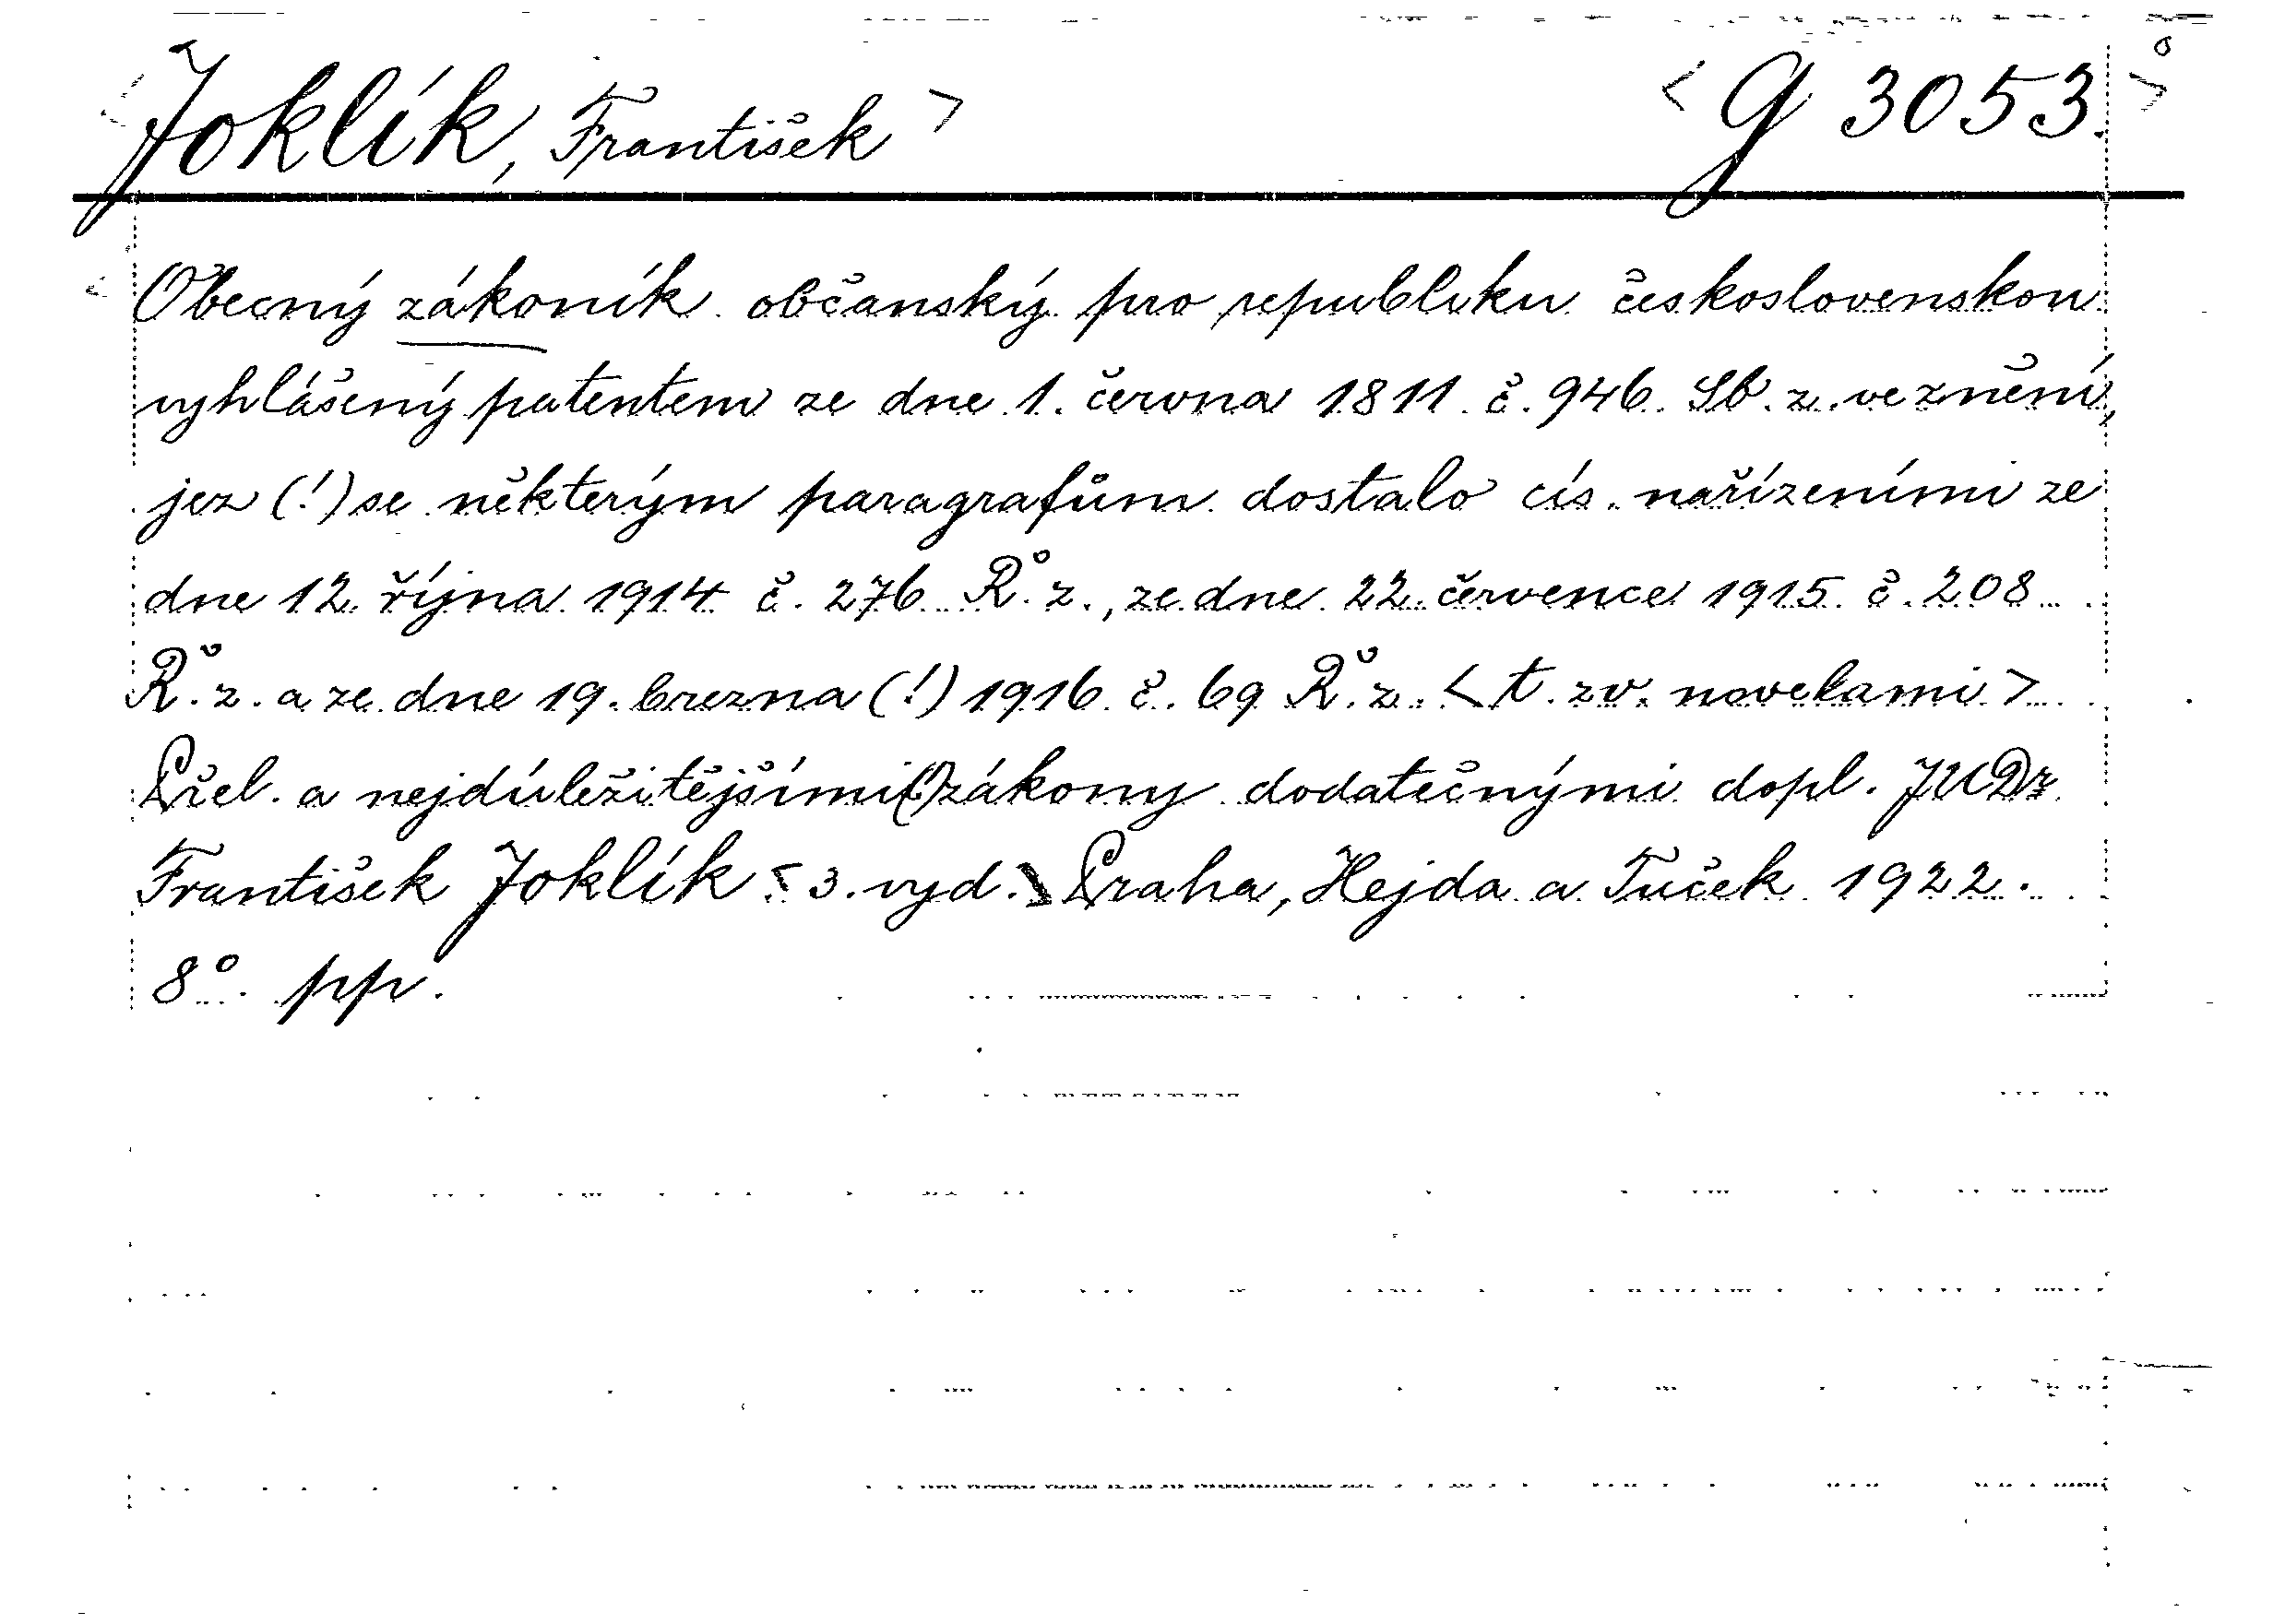 <Joklík, František> <G 3053.>
Obecný zákoník občanský pro republiku československou
vyhlášený patentem ze dne 1. června 1811 č. 946 Sb. z. ve znění,
jez (!) se některým paragrafům dostalo cís. nařízeními ze
dne 12. října 1914 č. 276 Ř. z., ze dne 22. července 1915 č. 208
Ř. z. a ze dne 19. brezna (!) 1916 č. 69 Ř. z. <t. zv. novelami>
Přel. a nejdúležitějšími(!) zákony dodatečnými dopl. JUDr
František Joklík <3. vyd.> Praha, Hejda a Tuček 1922.
8° pp.